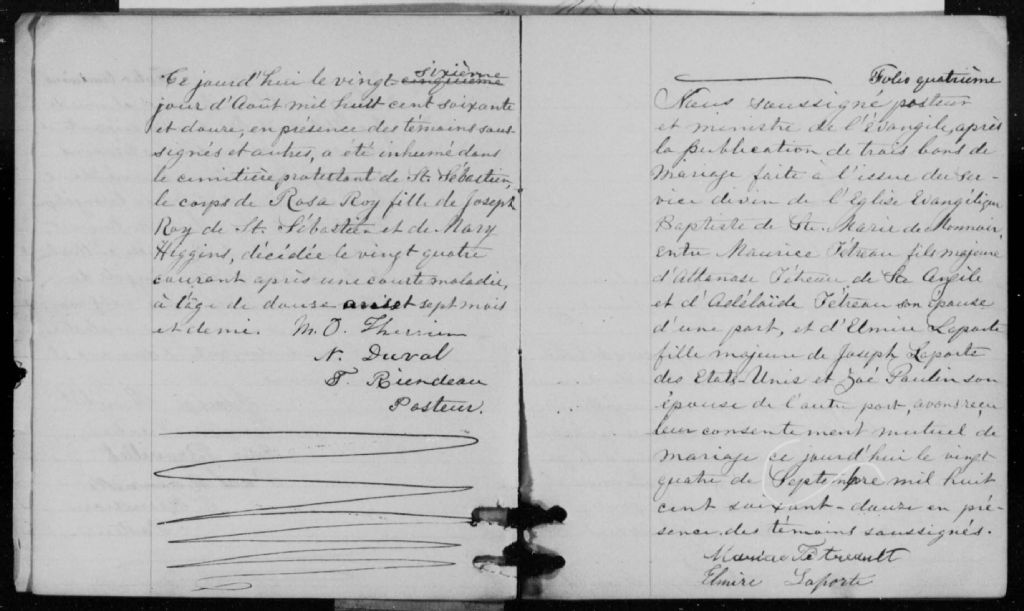 Ce jourd'hui le vingt sixième cinquième
jour d'Août mil huit cent soixante
et douze, en présence des témoins sous-
signés et autres, a été inhumé dans
le cimitière protestant de St. Sébastien,
le corps de Rosa Roy fille de Joseph
Roy de St. Sébastien et de Mary
Higgins, décédée le vingt quatre
courant après une courte maladie,
à l'âge de douze ans et sept mois
et demi. M. O. Therrien
N. Duval
T. Riendeau
Pasteur.
Folio quatrième
Nous soussigné pasteur
et ministre de l'évangile, après
la publication de trois bans de
Mariage faite à l'issue du Ser-
vice divin de l'Eglise Evangélique
Baptiste de Ste. Marie de Monnoir,
entre Maurice Tétreau fils majeure
d'Athanase Tétreau de Ste Angèle
et d'Adélaïde Tétreau son épouse
d'une part, et d'Elmire Laporte
fille majeure de Joseph Laporte
des Etats-Unis et Zoé Paulin son
épouse de l'autre part, avons reçu
leur consentement mutuel de
mariage ce jourd'hui le vingt
quatre de Septembre mil huit
cent soixant-douze en pré-
sence des témoins soussignés.
Tétreault
Elmire Laporte